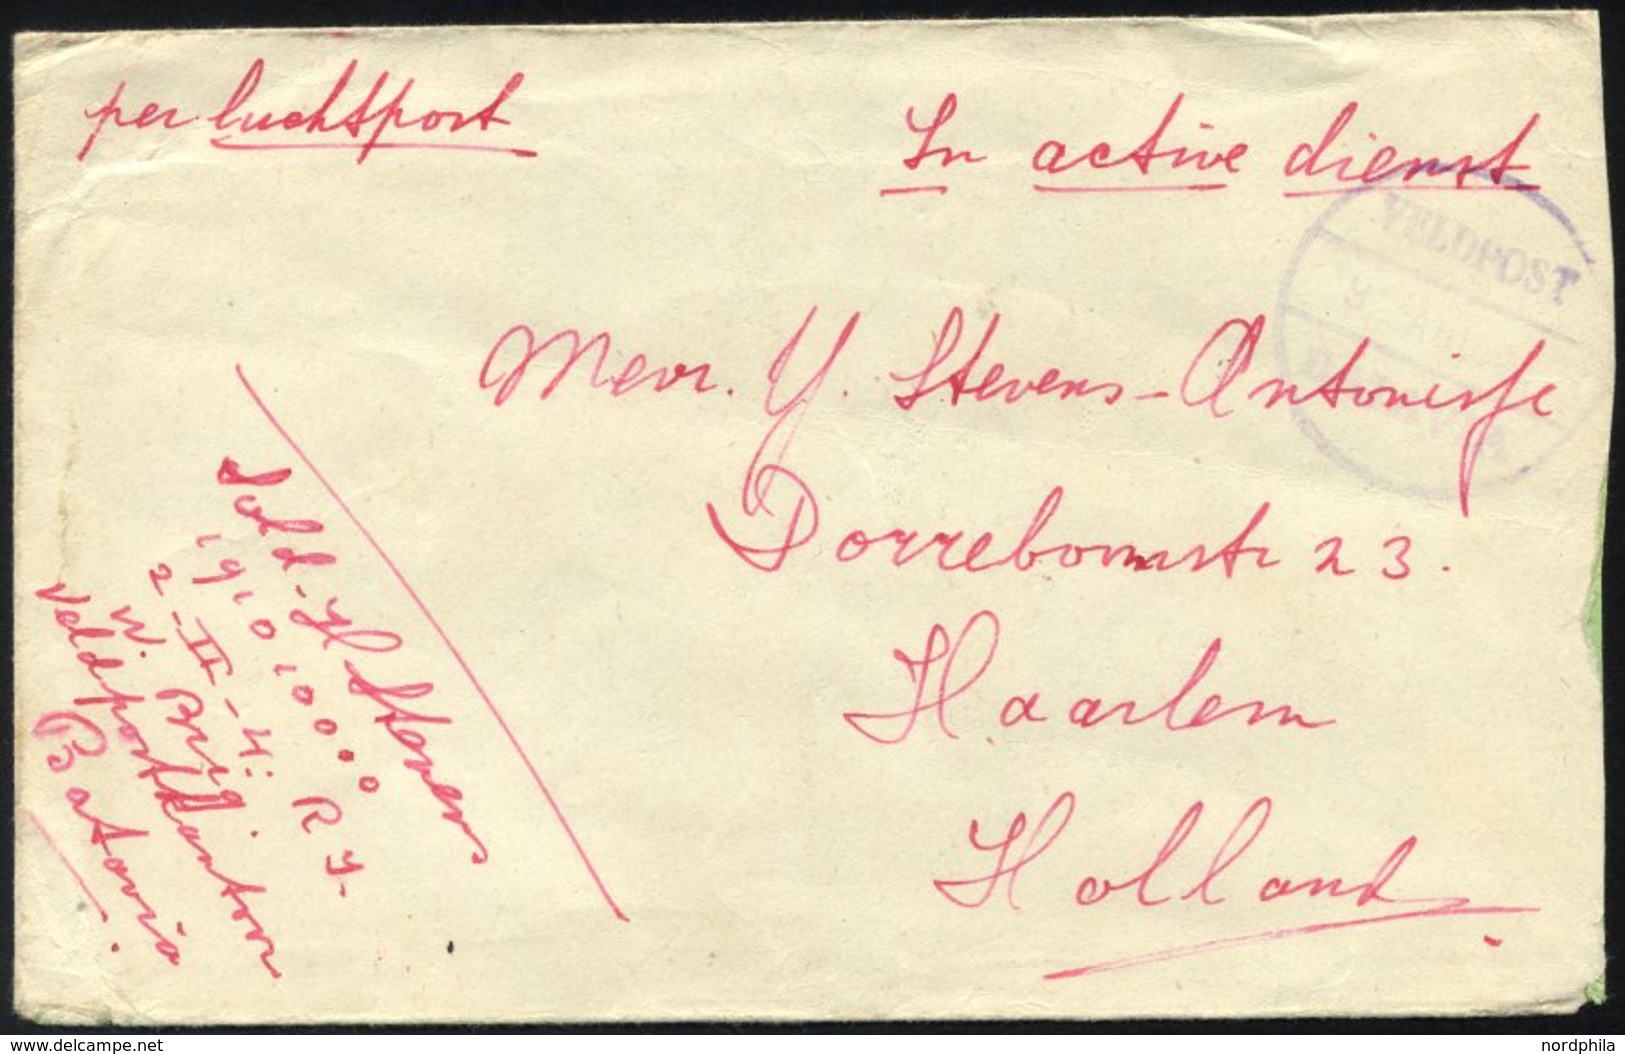 per luchtpost
In active dienst
VELDPOST
9
BATAVIA
Mevr. Y. Stevens-Antonisse
Dorreboomstr 23.
Haarlem
Holland
Sold. H Stevens
191010000
2-II-4. R J.
W. Brig.
Veldpostkantoor
Batavia
www.delcampe.net
nordphila